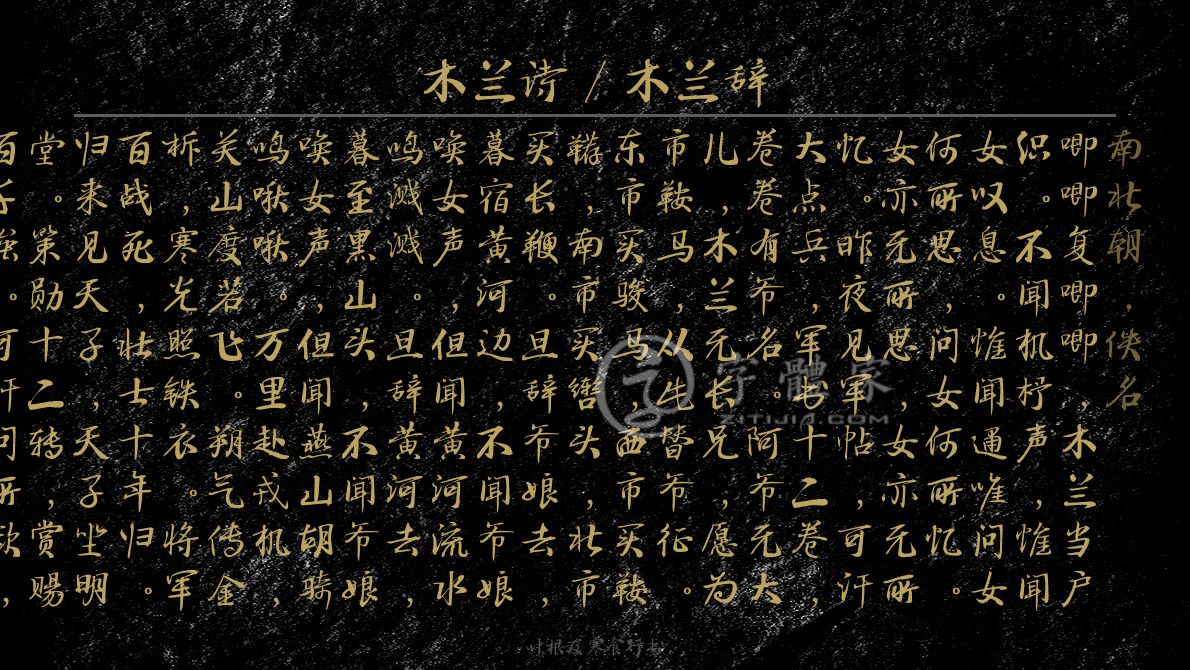 木兰诗 / 木兰辞
南北朝，佚名
唧唧复唧唧，木兰当户
织。不闻机杼声，惟闻
女叹息。惟闻通唯问女
何所思，问女何所忆。
女亦无所思，女亦无所
忆。昨夜见军帖，可汗
大点兵，军书十二卷，
卷卷有爷名。阿爷无大
儿，木兰无长兄，愿为
市鞍马，从此替爷征。
东市买骏马，西市买鞍
鞯，南市买辔头，北市
买长鞭。旦辞爷娘去，
暮宿黄河边，不闻爷娘
唤女声，但闻黄河流水
鸣溅溅。旦辞黄河去，
暮至黑山头，不闻爷娘
唤女声，但闻燕山胡骑
鸣啾啾。万里赴戎机，
关山度若飞。朔气传金
柝，寒光照铁衣。将军
百战死，壮士十年归。
归来见天子，天子坐明
堂。策勋十二转，赏赐
百千强。可汗问所欲，
字體家
ZITIJIA.COM
叶根友寒食行书